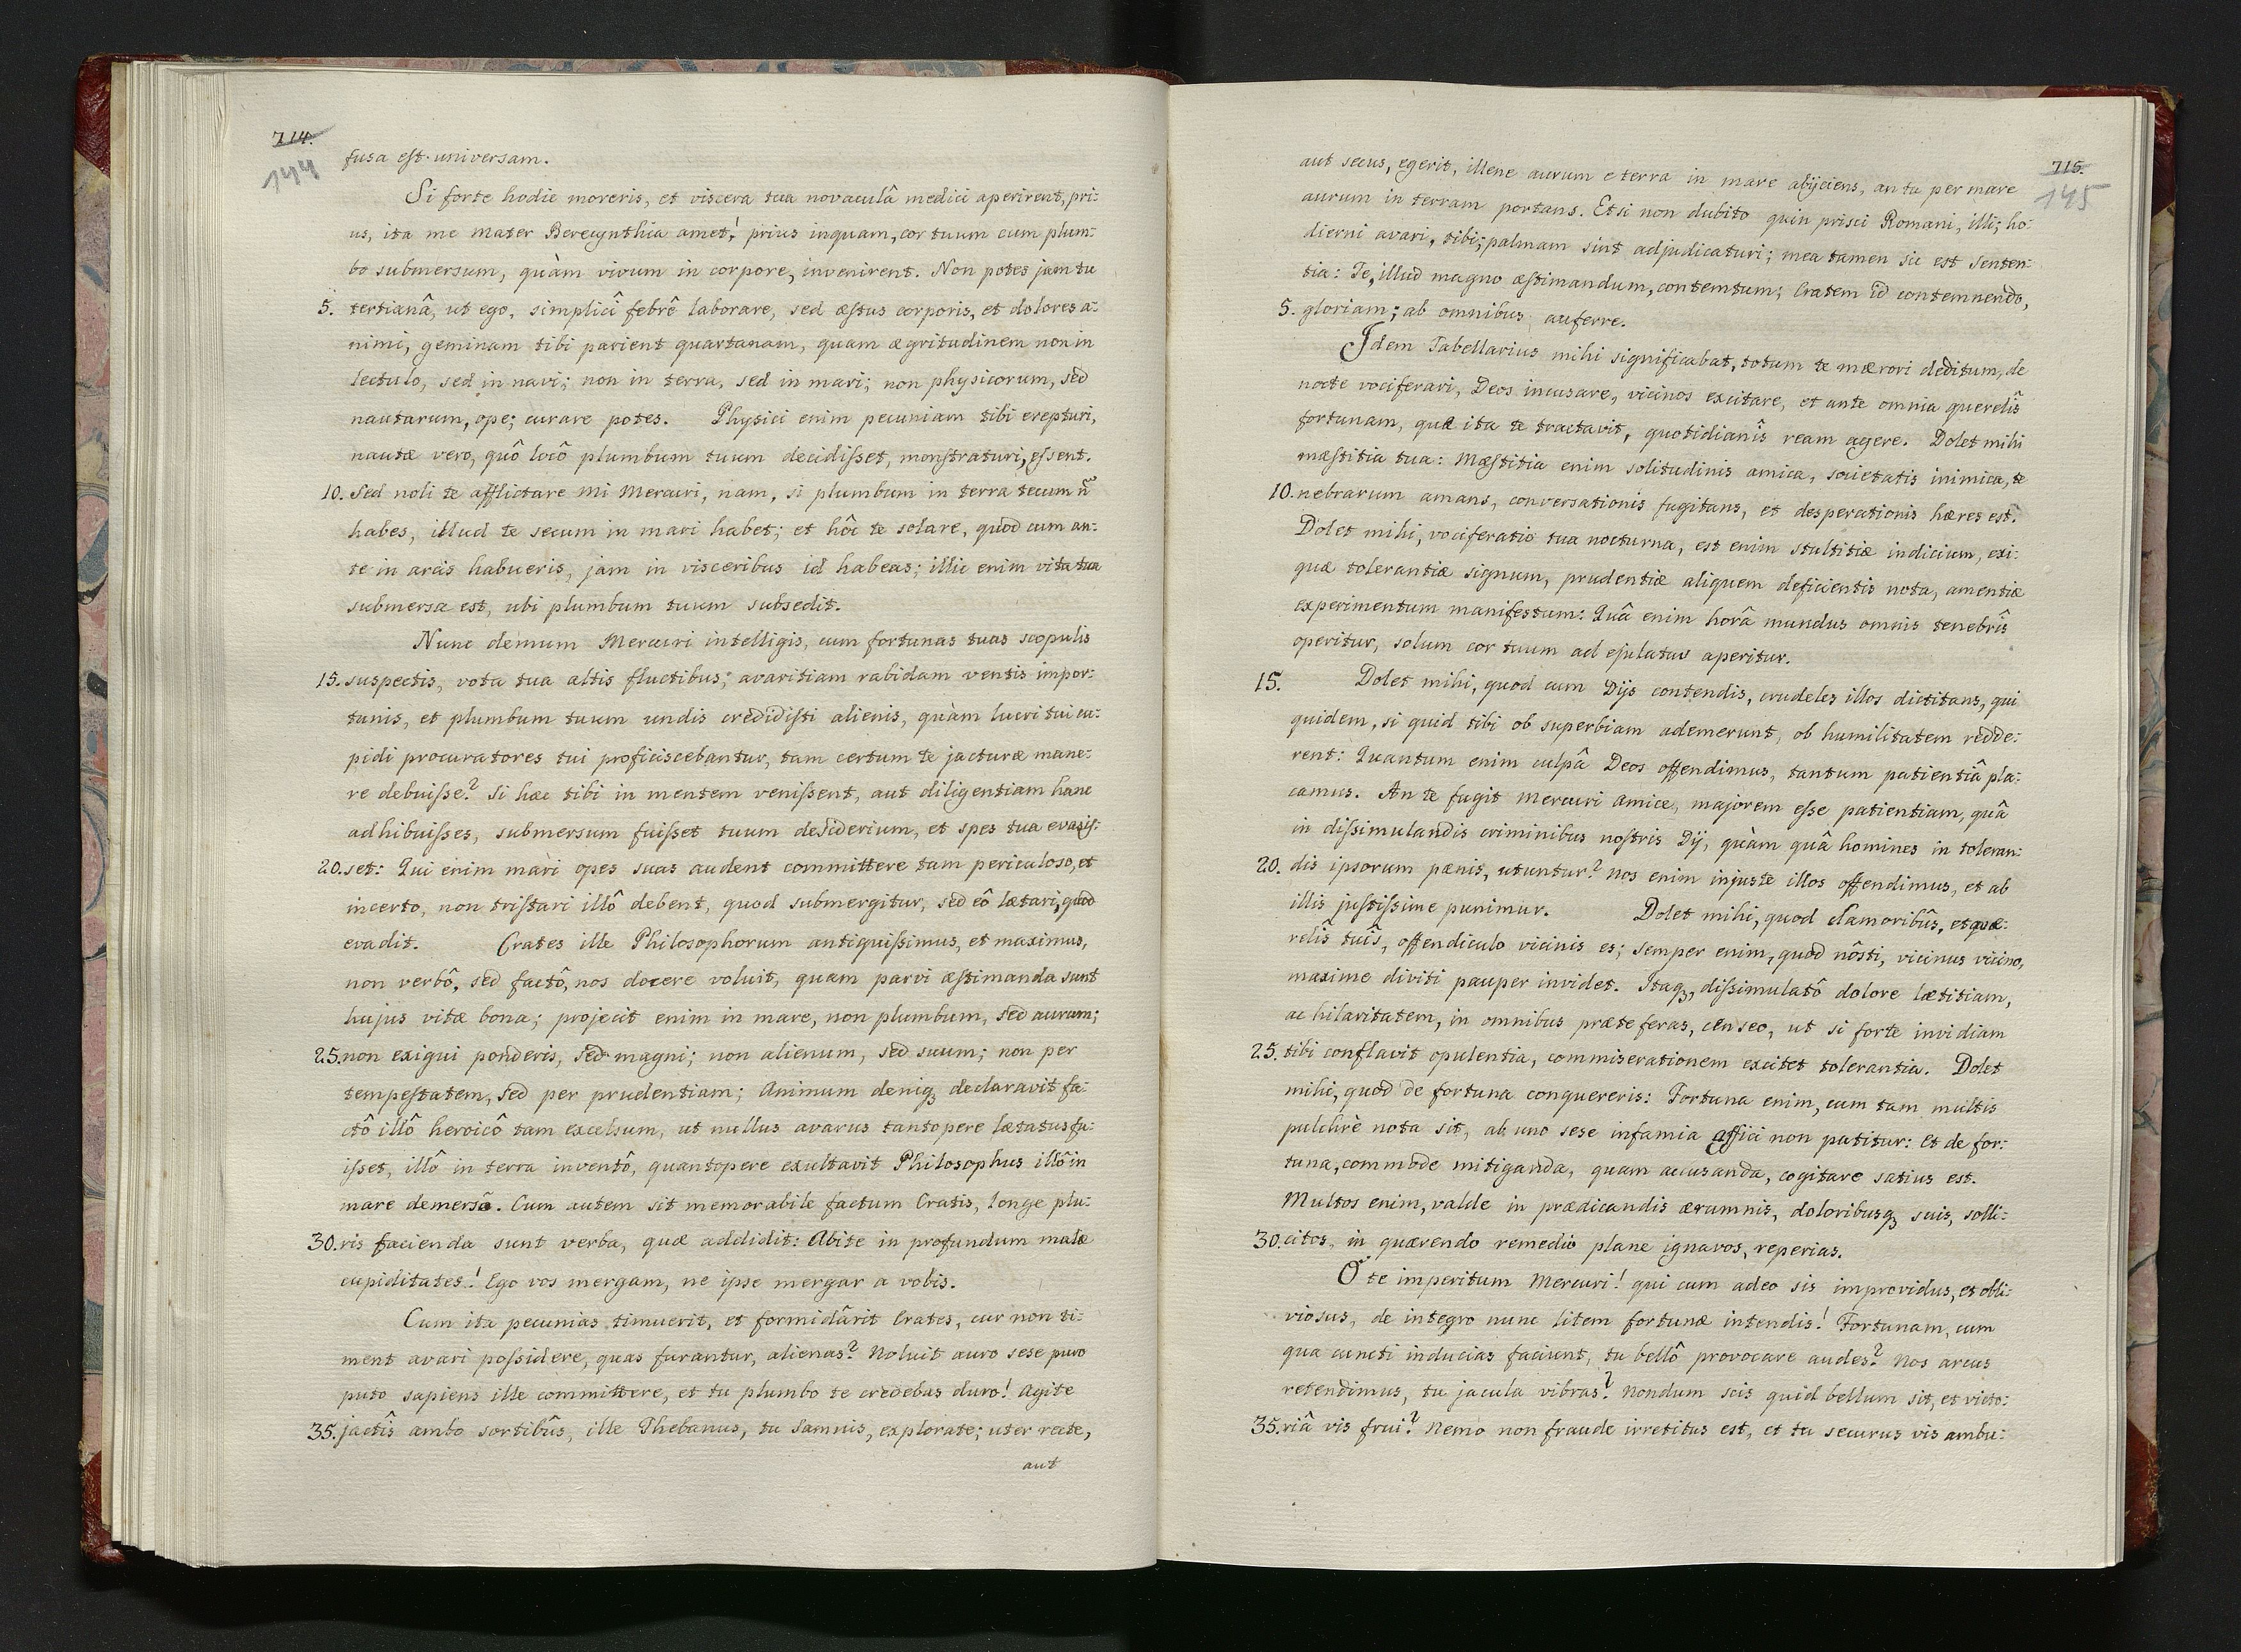 714.
144
fusa est universam.
Si forte hodie moreris, et viscera tua novaculâ medici aperirent, pri:
us, ita me Mater Berecynthia amet! prius inquam, cor tuum cum plum:
bo submersum, quàm vivum in corpore, invenirent. Non potes jam tu
5. tertianâ, ut ego, simplicî febrê laborare, sed æstus corporis, et dolores a:
nimi, geminam tibi parient quartanam, quam ægritudinem non in
lectulo, sed in navi; non in terra, sed in mari; non physicorum, sed
nautarum, ope; curare potes. Physici enim pecuniam tibi erepturi,
nautæ vero, quô locô plumbum tuum decidisset, monstraturi, essent.
10. Sed noli te afflictare mi Mercuri, nam, si plumbum in terra tecum n̄
habes, illud te secum in mari habet; et hôc te solare, quod cum an:
te in arcis habueris, jam in visceribus id habeas; illic enim vita tua
submersa est, ubi plumbum tuum subsedit.
Nunc demum Mercuri intelligis, cum fortunas tuas scopulis
15. suspectis, vota tua altis fluctibus; avaritiam rabidam ventis impor:
tunis, et plumbum tuum undis credidisti alienis, quàm lucri tui cu:
pidi procuratores tui proficiscebantur, tam certum te jacturæ mane:
re debuisse? Si hæc tibi in mentem venissent, aut diligentiam hanc
adhibuisses, submersum fuisset tuum desiderium, et spes tua evasis:
20. set: Qui enim mari opes suas audent committere tam periculoso, et
incerto, non tristari illô debent, quod submergitur, sed eô lætari, quod
evadit. Crates ille Philosophorum antiquissimus, et maximus,
non verbô, sed factô, nos docere voluit, quam parvi æstimanda sunt
hujus vitæ bona; projecit enim in mare, non plumbum, sed aurum;
25. non exigui ponderis, sed magni; non alienum, sed suum; non per
tempestatem, sed per prudentiam; Animum deniqȝ declaravit fa:
ctô illô heroicô tam excelsum, ut nullus avarus tantopere lætatus fu:
isset, illô in terra inventô, quantopere exultavit Philosophus illô in
mare demersô. Cum autem sit memorabile factum Cratis, longe plu:
30. ris facienda sunt verba, quæ addidit: Abite in profundum malæ
cupiditates! Ego vos mergam, ne ipse mergar a vobis.
Cum ita pecunias timuerit, et formidârit Crates, cur non ti:
ment avari possidere, quas furantur, alienas? Noluit auro sese puro
puto sapiens ille committere, et tu plumbo te credebas duro! Agite
35. jactîs ambo sortibûs, ille Thebanus, tu Samnis, explorate; uter recte,
aut
715.
145
aut secus, egerit, illene aurum e terra in mare abijciens, an tu per mare
aurum in terram portans. Etsi non dubito quin prisci Romani, illi; ho:
dierni avari, tibi; palmam sint adjudicaturi; mea tamen sic est senten:
tia: Te, illud magno æstimandum, contemtum; Cratem id contemnendo,
5. gloriam; ab omnibus auferre.
Idem Tabellarius mihi significabat, totum te mærori deditum, de
nocte vociferari, Deos incusare, vicinos excitare, et ante omnia querelîs
fortunam, quæ ita te tractavit, quotidianîs ream agere. Dolet mihi
mæstitia tua: Mæstitia enim solitudinis amica, societatis inimica, te
10. nebrarum amans, conversationis fugitans, et desperationis hæres est.
Dolet mihi, vociferatio tua nocturna, est enim stultitiæ indicium, exi:
quæ tolerantiæ signum, prudentiæ aliquem deficientis nota, amentiæ
experimentum manifestum: Quâ enim horâ mundus omnis tenebrîs
operitur, solum cor tuum ad ejulatus aperitur.
15. Dolet mihi, quod cum Dijs contendis, crudeles illos dictitans, qui
quidem, si quid tibi ob superbiam ademerunt, ob humilitatem redde:
rent: Quantum enim culpâ Deos offendimus, tantum patientiâ pla:
camus. An te fugit Mercuri Amice, majorem esse patientiam, quâ
in dissimulandis criminibus nostris Dij, quàm quâ homines in toleran:
20. dis ipsorum pænis, utuntur? Nos enim injuste illos offendimus, et ab
illis justissime punimur. Dolet mihi, quod clamoribûs, et quæ:
relîs tuîs, offendiculo vicinis es; semper enim, quod nôsti, vicinus vicino,
maxime diviti pauper invidet. Itaqȝ, dissimulatô dolore lætitiam,
ac hilaritatem, in omnibus præte feras, censeo, ut si forte invidiam
25. tibi conflavit opulentia, commiserationem excitet tolerantia. Dolet
mihi, quod de fortuna conquereris: Fortuna enim, cum tam multis
pulchrè nota sit, ab uno sese infamia affici non patitur: Et de for:
tuna, commode mitiganda, quam accusanda, cogitare satius est.
Multos enim, valde in prædicandis ærumnis, doloribusqȝ suis, solli:
30. citos, in quærendo remedio plane ignavos, reperias.
O te imperitum Mercuri! qui cum adeo sis improvidus, et obli:
viosus, de integro nunc litem fortunæ intendis! Fortunam, cum
qua cuncti inducias faciunt, tu bellô provocare audes? Nos arcus
retendimus, tu jacula vibras? Nondum scis quid bellum sit, et victo:
35. riâ vis frui? Nemo non fraude irretitus est, et tu securus vis ambu: